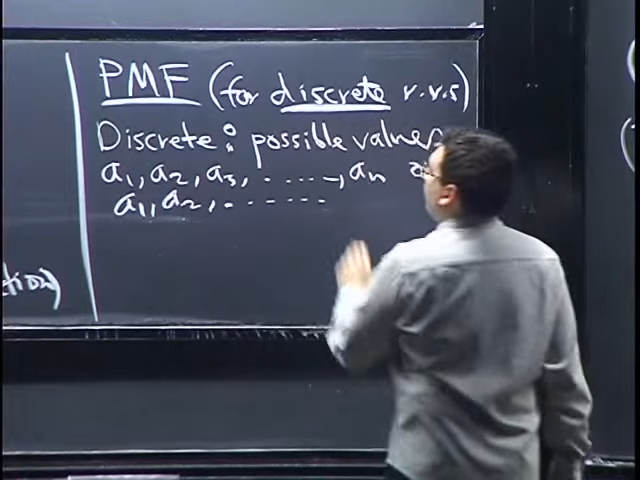 PMF (for discrete r.v.s)
Discrete: possible values
a₁, a₂, a₃, ......, aₙ
a₁, a₂, .......
tion)